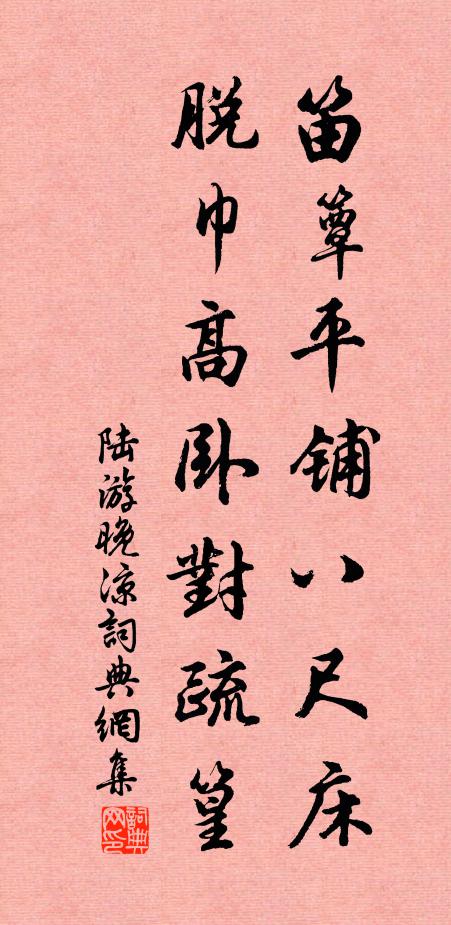 笛簟平铺八尺床
脱巾高卧對疏篁
陆游晚凉詞典網集
詞典网印